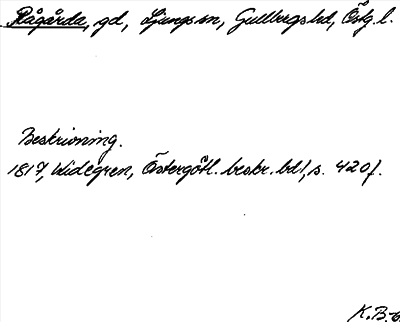 Rågårda, gd, Ljungs sn, Gullbergs hd, Östg. l.
Beskrivning.
1817, Widegren, Östergötl. beskr. bd 1, s. 420 f.
K.B-